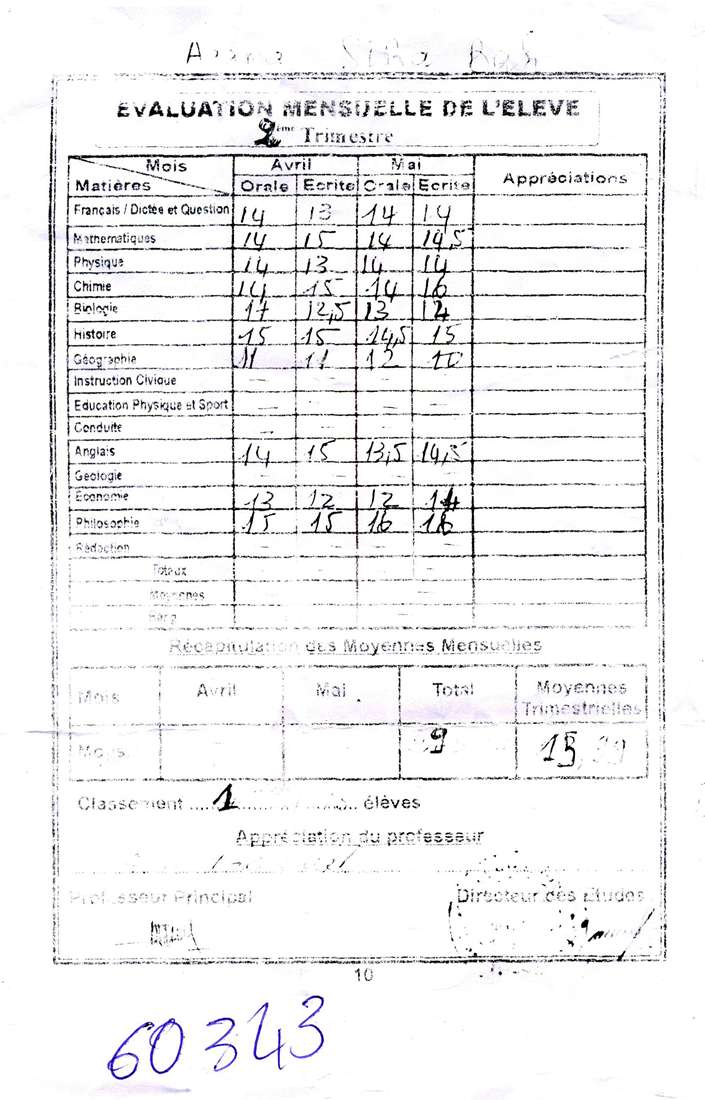 EVALUATION MENSUELLE DE L'ELEVE
2ème Trimestre
Mois Avril Mai Appréciations
Matières Orale Ecrite Orale Ecrite
Français / Dictée et Question 14 13 14 14
Mathematiques 14 15 14 14,5
Physique 14 13 14 14
Chimie 14 15 14 16
Biologie 17 12,5 13 12
Histoire 15 15 14,5 15
Géographie 11 11 12 10
Instruction Civique
Education Physique et Sport
Conduite
Anglais 14 15 13,5 14,5
Geologie
Economie 13 12 12 14
Philosophie 15 15 16 16
Rédaction
Totaux
Moyennes
Rang
Récapitulation des Moyennes Mensuelles
Mois Avril Mai Total Moyennes
Trimestrielles
9 15
Classement 1 élèves
Appréciation du professeur
Professeur Principal Directeur des Etudes
10
60343